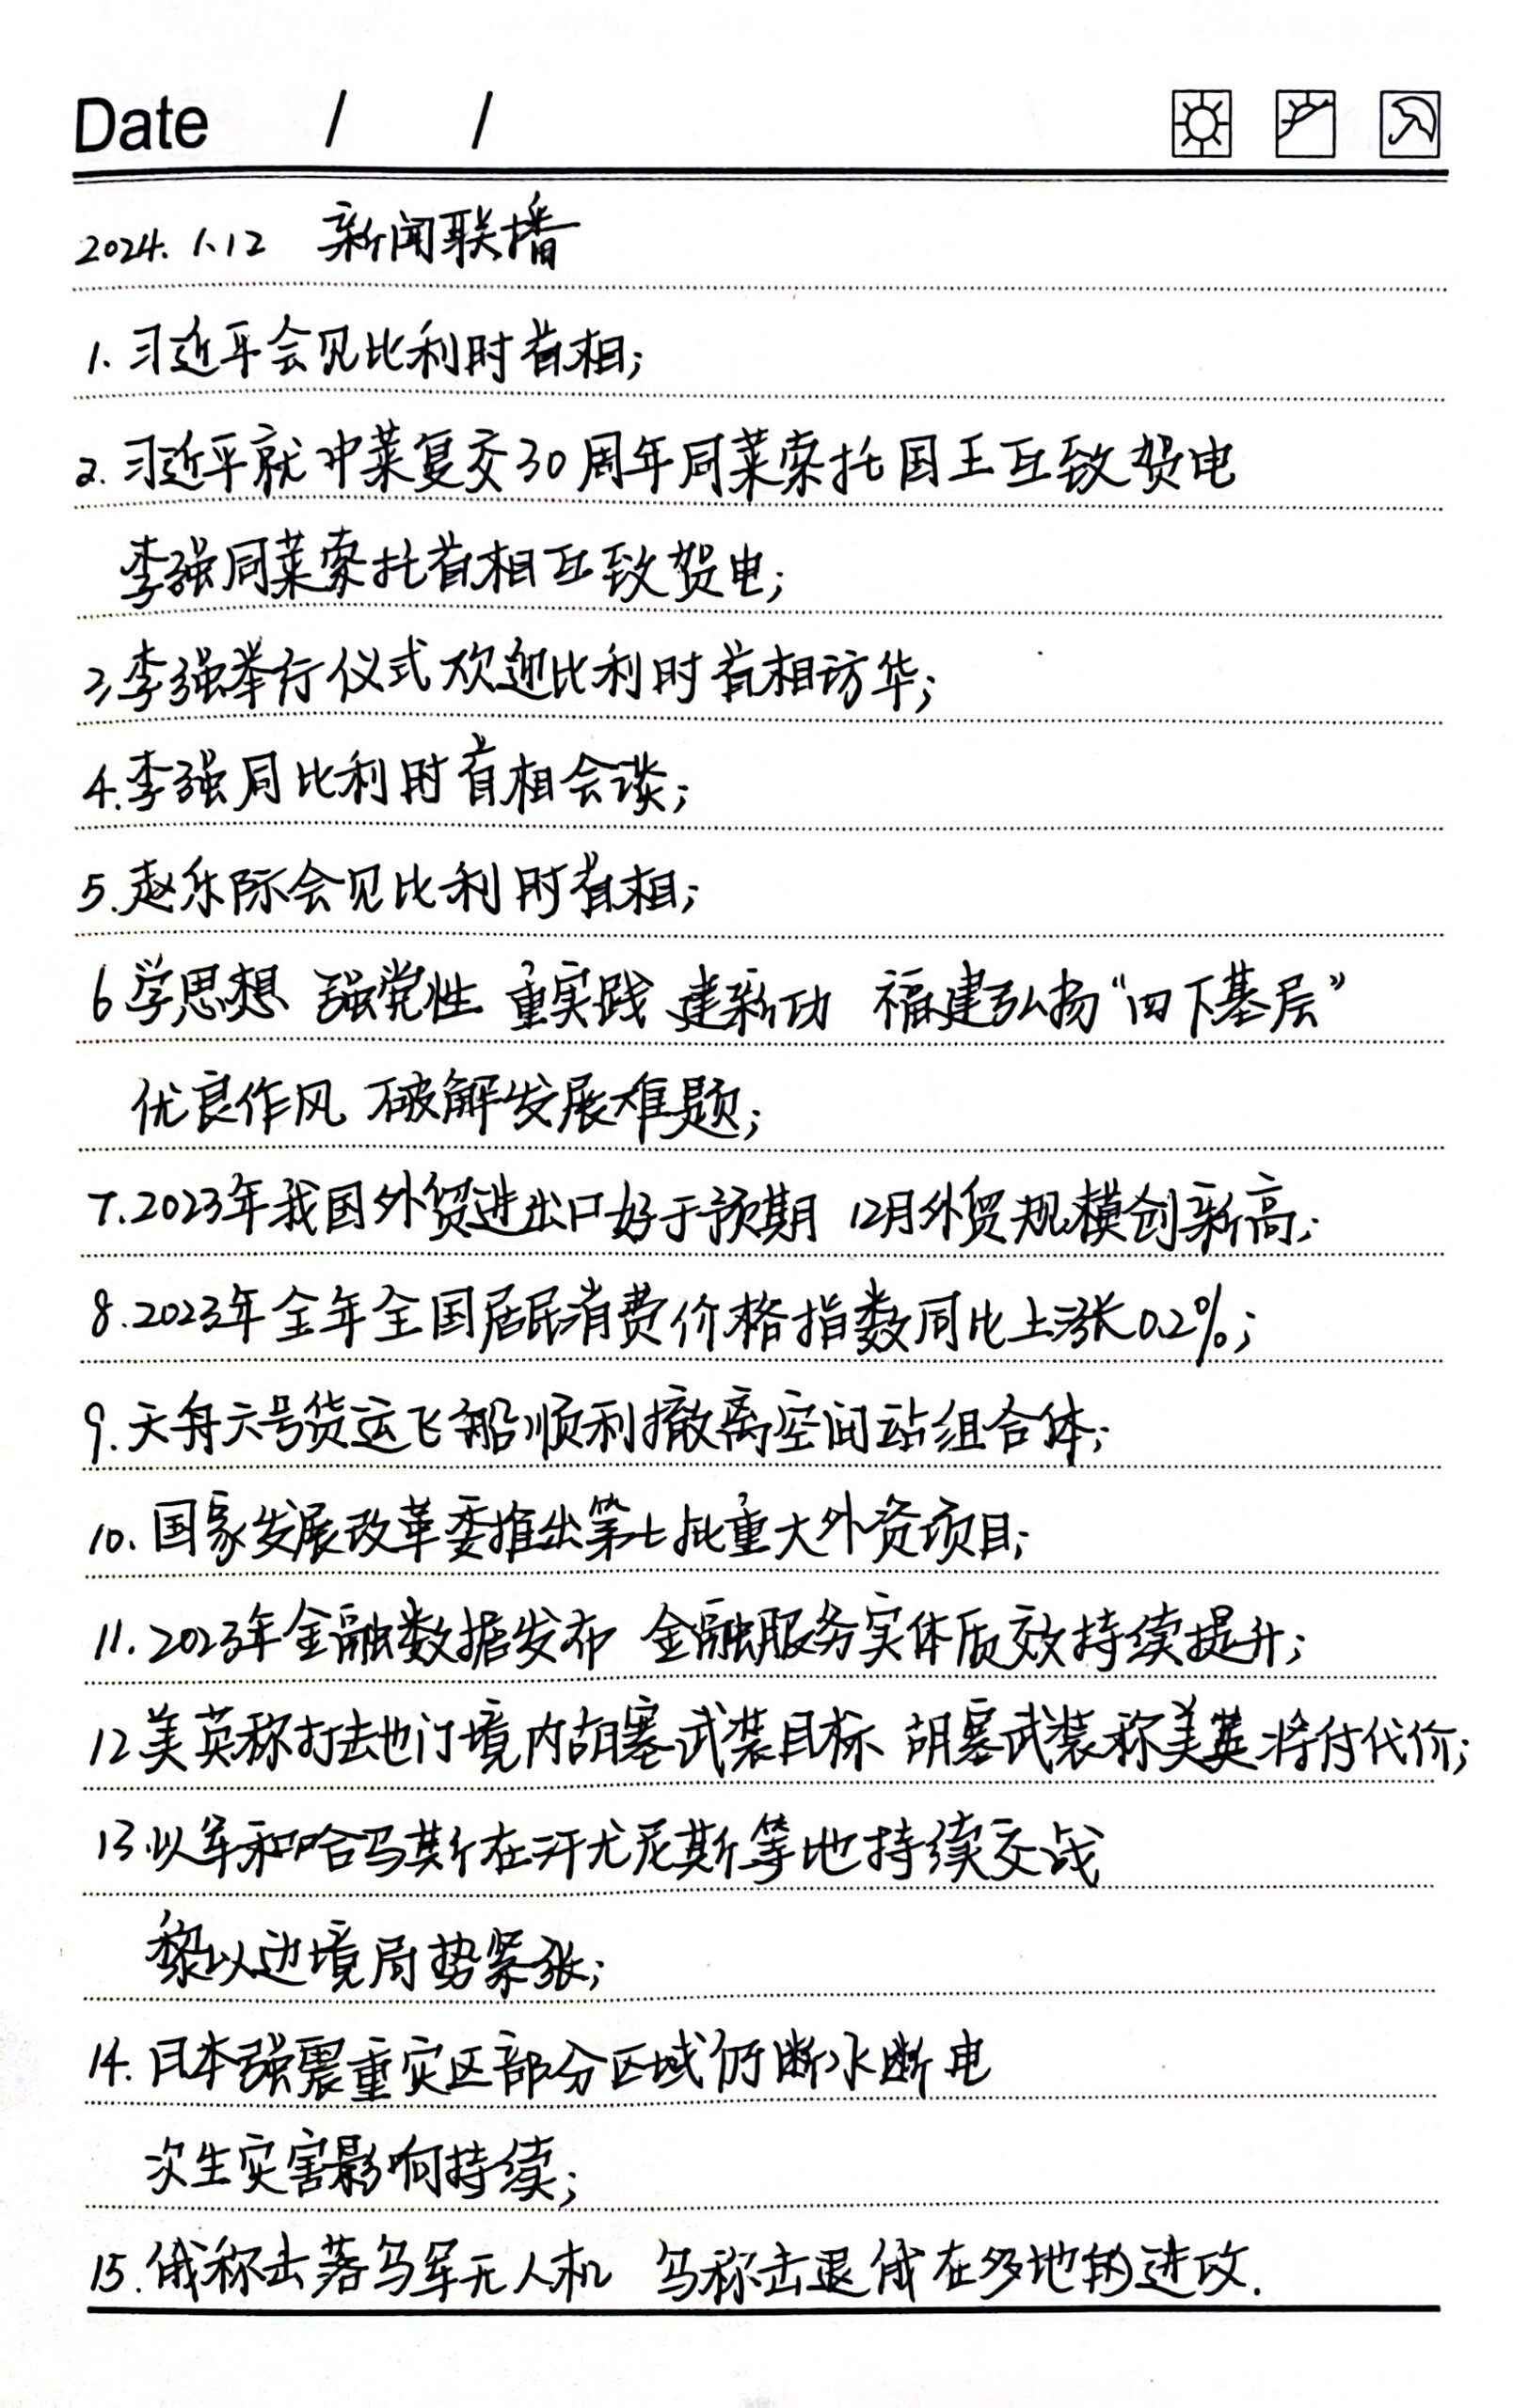 Date / /
2024.1.12 新闻联播
1.习近平会见比利时首相;
2.习近平就中莱复交30周年同莱索托国王互致贺电
李强同莱索托首相互致贺电;
3.李强举行仪式欢迎比利时首相访华;
4.李强同比利时首相会谈;
5.赵乐际会见比利时首相;
6学思想 强党性 重实践 建新功 福建弘扬“四下基层”
优良作风 破解发展难题;
7.2023年我国外贸进出口好于预期 12月外贸规模创新高;
8.2023年全年全国居民消费价格指数同比上涨0.2%;
9.天舟六号货运飞船顺利撤离空间站组合体;
10.国家发展改革委推出第七批重大外资项目;
11.2023年金融数据发布 金融服务实体质效持续提升;
12美英称打击也门境内胡塞武装目标 胡塞武装称美英将付代价;
13.以军和哈马斯在汗尤尼斯等地持续交战
黎以边境局势紧张;
14.日本强震重灾区部分区域仍断水断电
次生灾害影响持续;
15.俄称击落乌军无人机 乌称击退俄在多地的进攻.